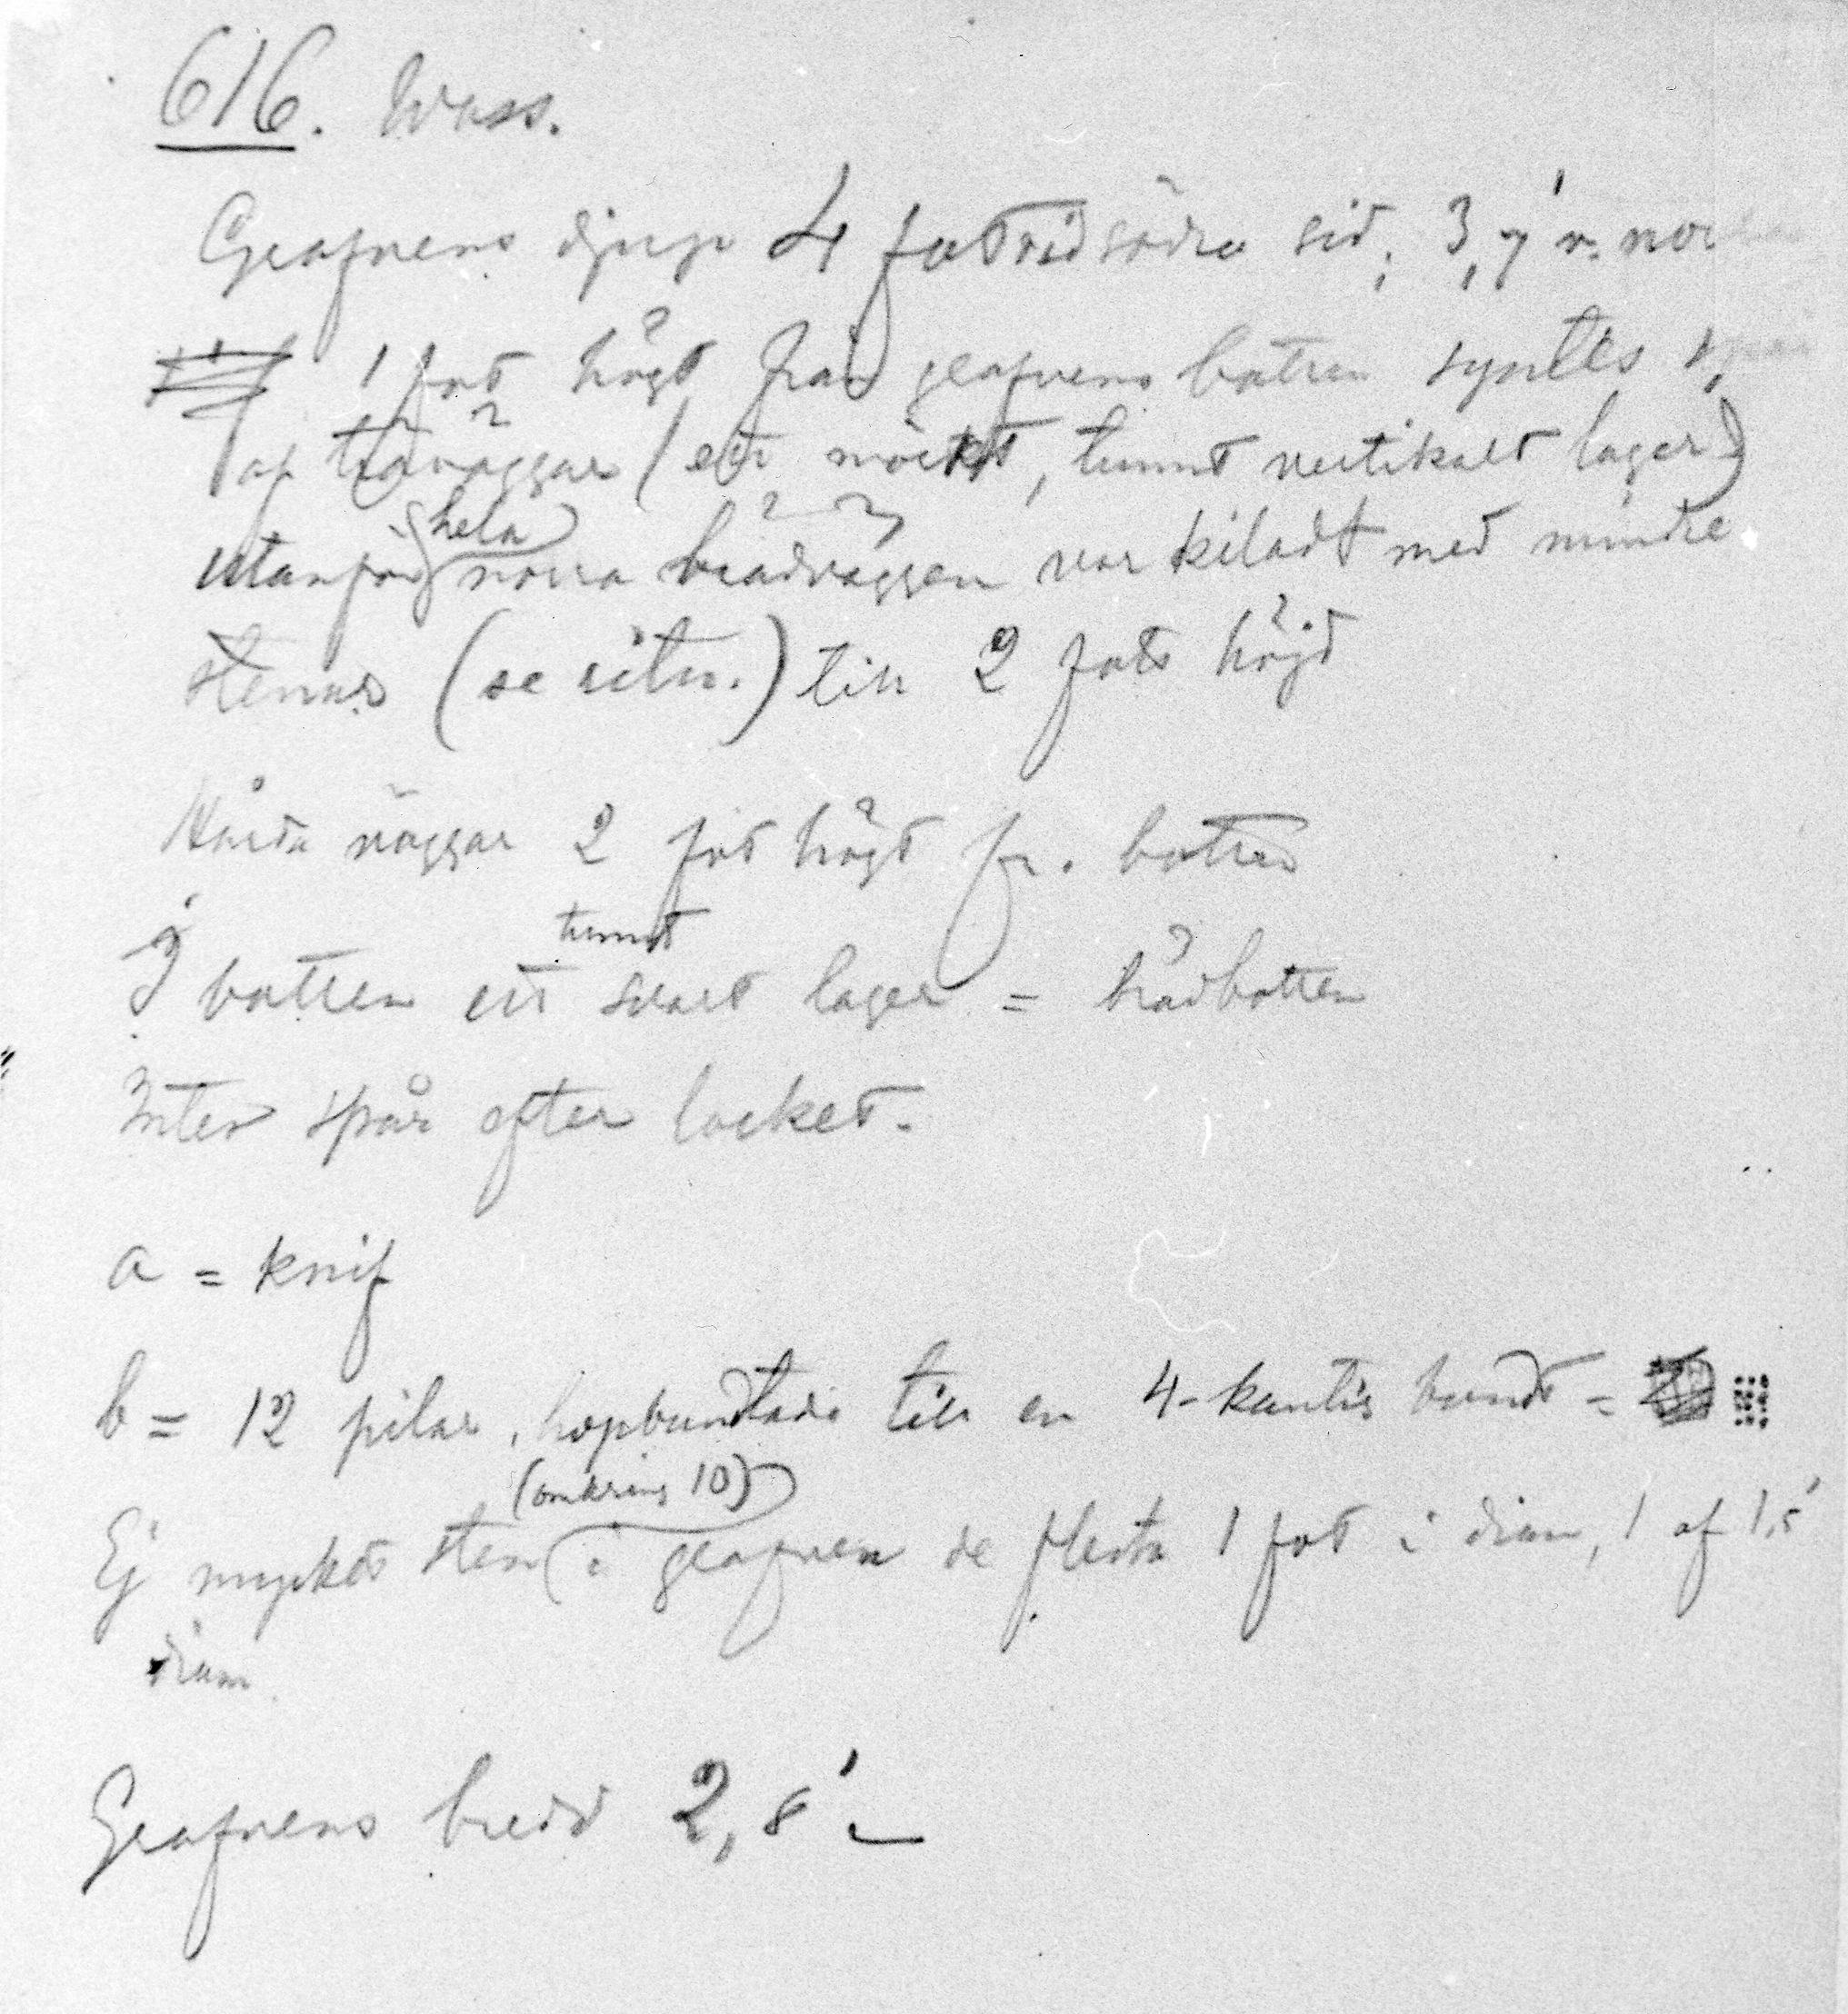 616. Wass.
Grafvens djup 4 fot vid södra sid; 3,7' v. nor
1 fot högt från grafvens botten syntes spår
af träväggar (ett mörkt, tunnt vertikalt lager)
utanför hela norra brädväggen var kiladt med mindre
stenar (se ritn.) till 2 fots höjd
Hårda väggar 2 fot högt fr. botten
I botten ett tunnt svart lager = träbotten
Intet spår efter locket.
a = knif
b = 12 pilar, hopbuntade till en 4-kantig bundt =
Ej mycket sten (omkring 10) i grafven de flesta 1 fot i diam, 1 af 1,5'
diam.
Grafvens bredd 2,8'